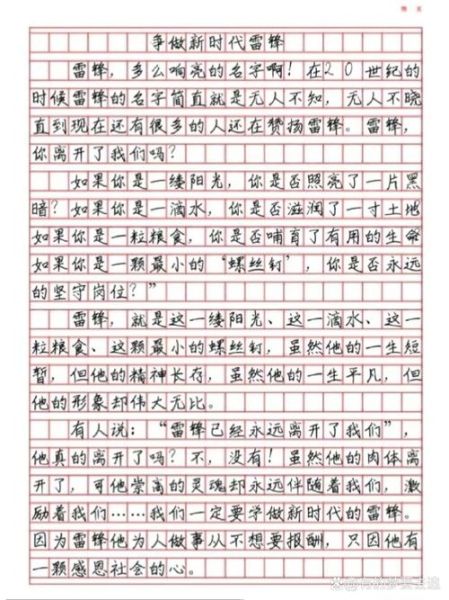 争做新时代雷锋
雷锋，多么响亮的名字啊！在20世纪的
时候雷锋的名字简直就是无人不知，无人不晓
直到现在还有很多的人还在赞扬雷锋。雷锋，
你离开了我们吗？
如果你是一缕阳光，你是否照亮了一片黑
暗？如果你是一滴水，你是否滋润了一寸土地
如果你是一粒粮食，你是否哺育了有用的生命
如果你是一颗最小的‘螺丝钉’，你是否永远
的坚守岗位？”
雷锋，就是这一缕阳光、这一滴水、这一
粒粮食、这颗最小的螺丝钉，虽然他的一生短
暂，但他的精神长存，虽然他的一生平凡，但
他的形象却伟大无比。
有人说：“雷锋已经永远离开了我们”，
他真的离开了吗？不，没有！虽然他的肉体离
开了，可他崇高的灵魂却永远伴随着我们，激
励着我们……我们一定要学做新时代的雷锋。
因为雷锋他为人做事从不想要报酬，只因他有
一颗感恩社会的心。